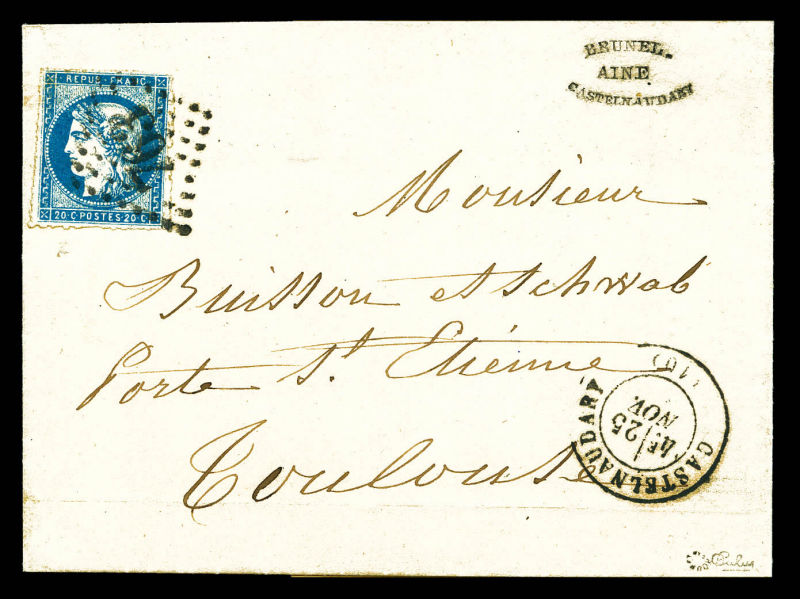 BRUNEL.
AINE
CASTELNAUDARY
REPUB. FRANC.
20.C POSTES 20.C
Monsieur
Buisson et Schwab
Porte St. Etienne
Toulouse
CASTELNAUDARY (10)
25
NOV.